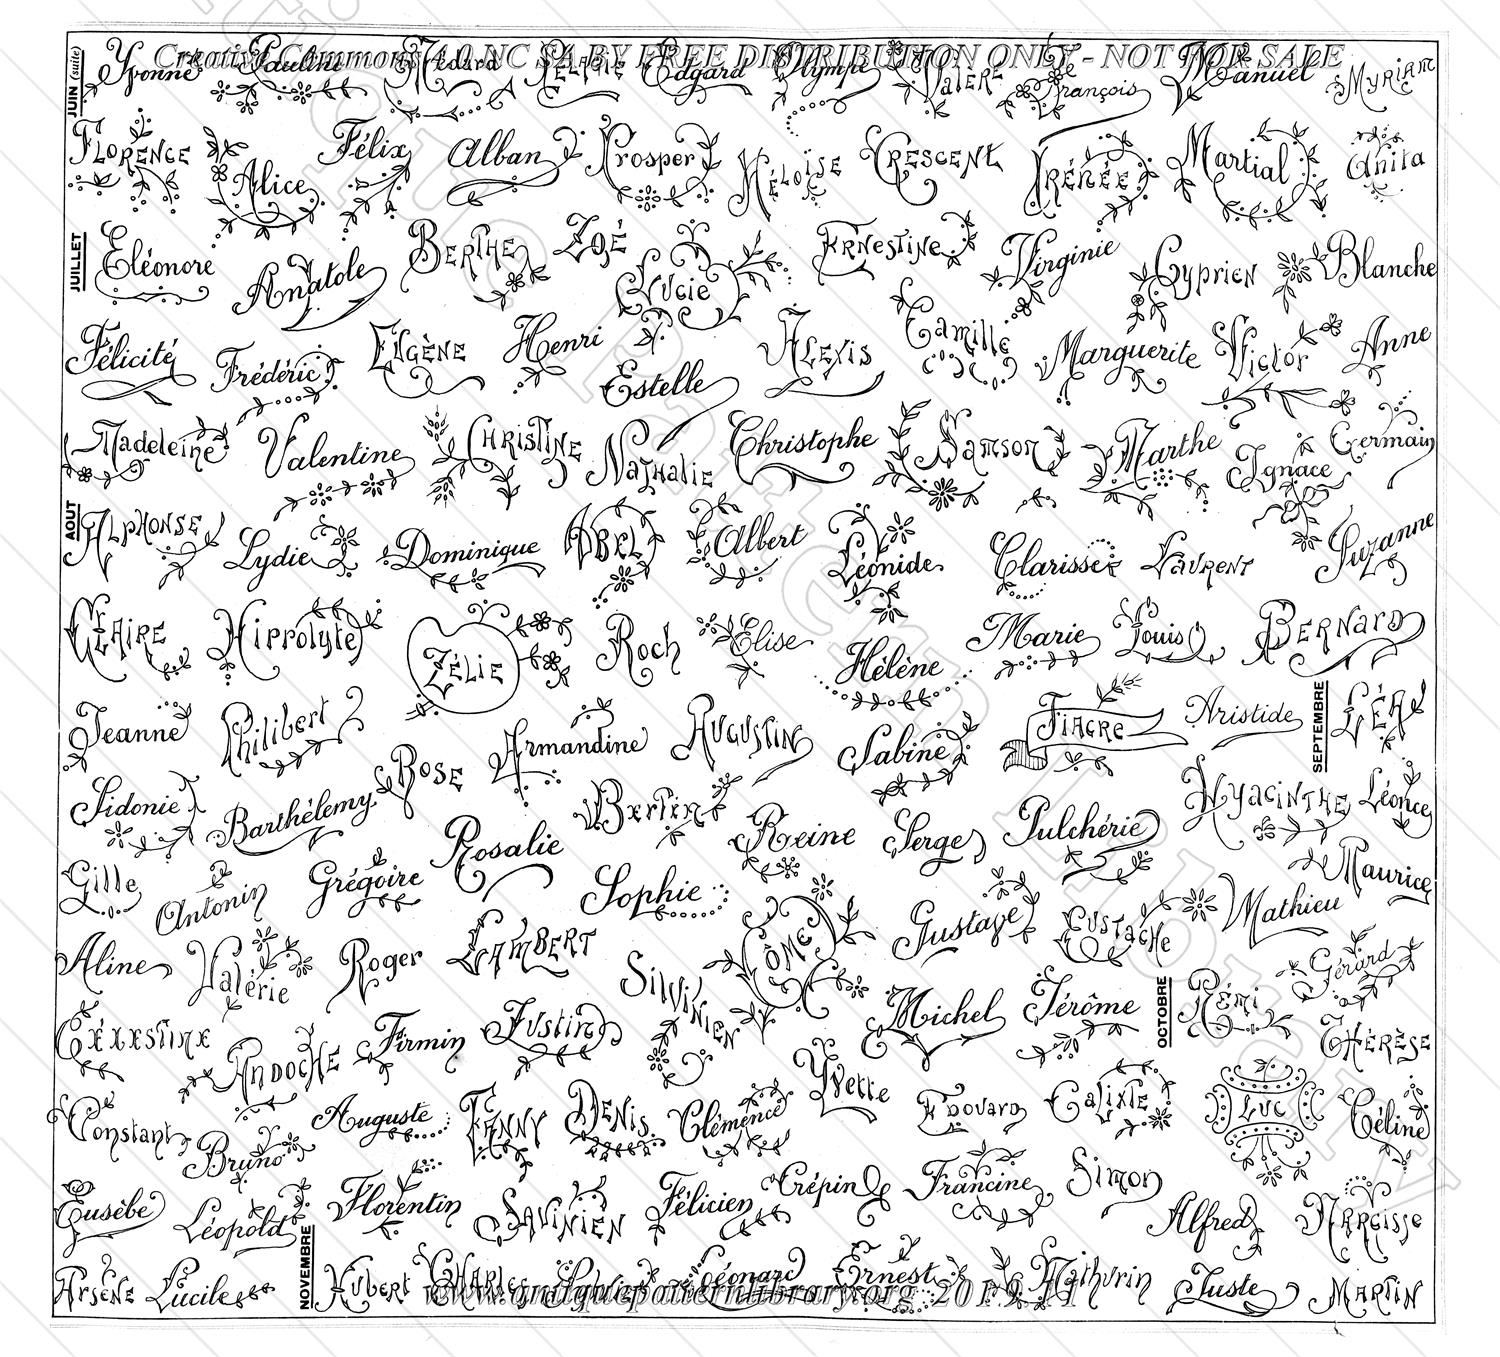 Creative Commons 4.0 NC SA BY FREE DISTRIBUTION ONLY - NOT FOR SALE
JUIN (suite)
Yvonne Paulin Médard Pélagie Edgard Olympe Valère François Manuel Myriam
Florence Alice Félix Alban Prosper Héloïse Crescent Irénée Martial Anita
JUILLET
Eléonore Anatole Berthe Zoé Lucie Ernestine Virginie Cyprien Blanche
Félicité Frédéric Eugène Henri Estelle Alexis Camille Marguerite Victor Anne
Madeleine Valentine Christine Nathalie Christophe Samson Marthe Ignace Germain
AOUT
Alphonse Lydie Dominique Abel Albert Léonide Clarisse Laurent Suzanne
Claire Hippolyte Zélie Roch Elise Hélène Marie Louis Bernard
Jeanne Philibert Rose Armandine Augustin Sabine Fiacre Aristide
SEPTEMBRE
Léa
Sidonie Barthélemy Rosalie Bertin Reine Serge Pulchérie Hyacinthe Léonce
Gille Antonin Grégoire Sophie Gustave Eustache Mathieu Maurice
Aline Valérie Roger Lambert Silvinien Côme Michel Jérôme
OCTOBRE
Rémi Gérard
Célestine Andoche Firmin Justin Yvette Edouard Calixte Luc Thérèse
Constant Bruno Auguste Fanny Denis Clémence Céline
Eusèbe Léopold Florentin Savinien Félicien Crépin Francine Simon Alfred Narcisse
Arsène Lucile
NOVEMBRE
Hubert Charles Sylvie Léonard Ernest Mathurin Juste Martin
www.antiquepatternlibrary.org 2019.11
Antique Pattern Library